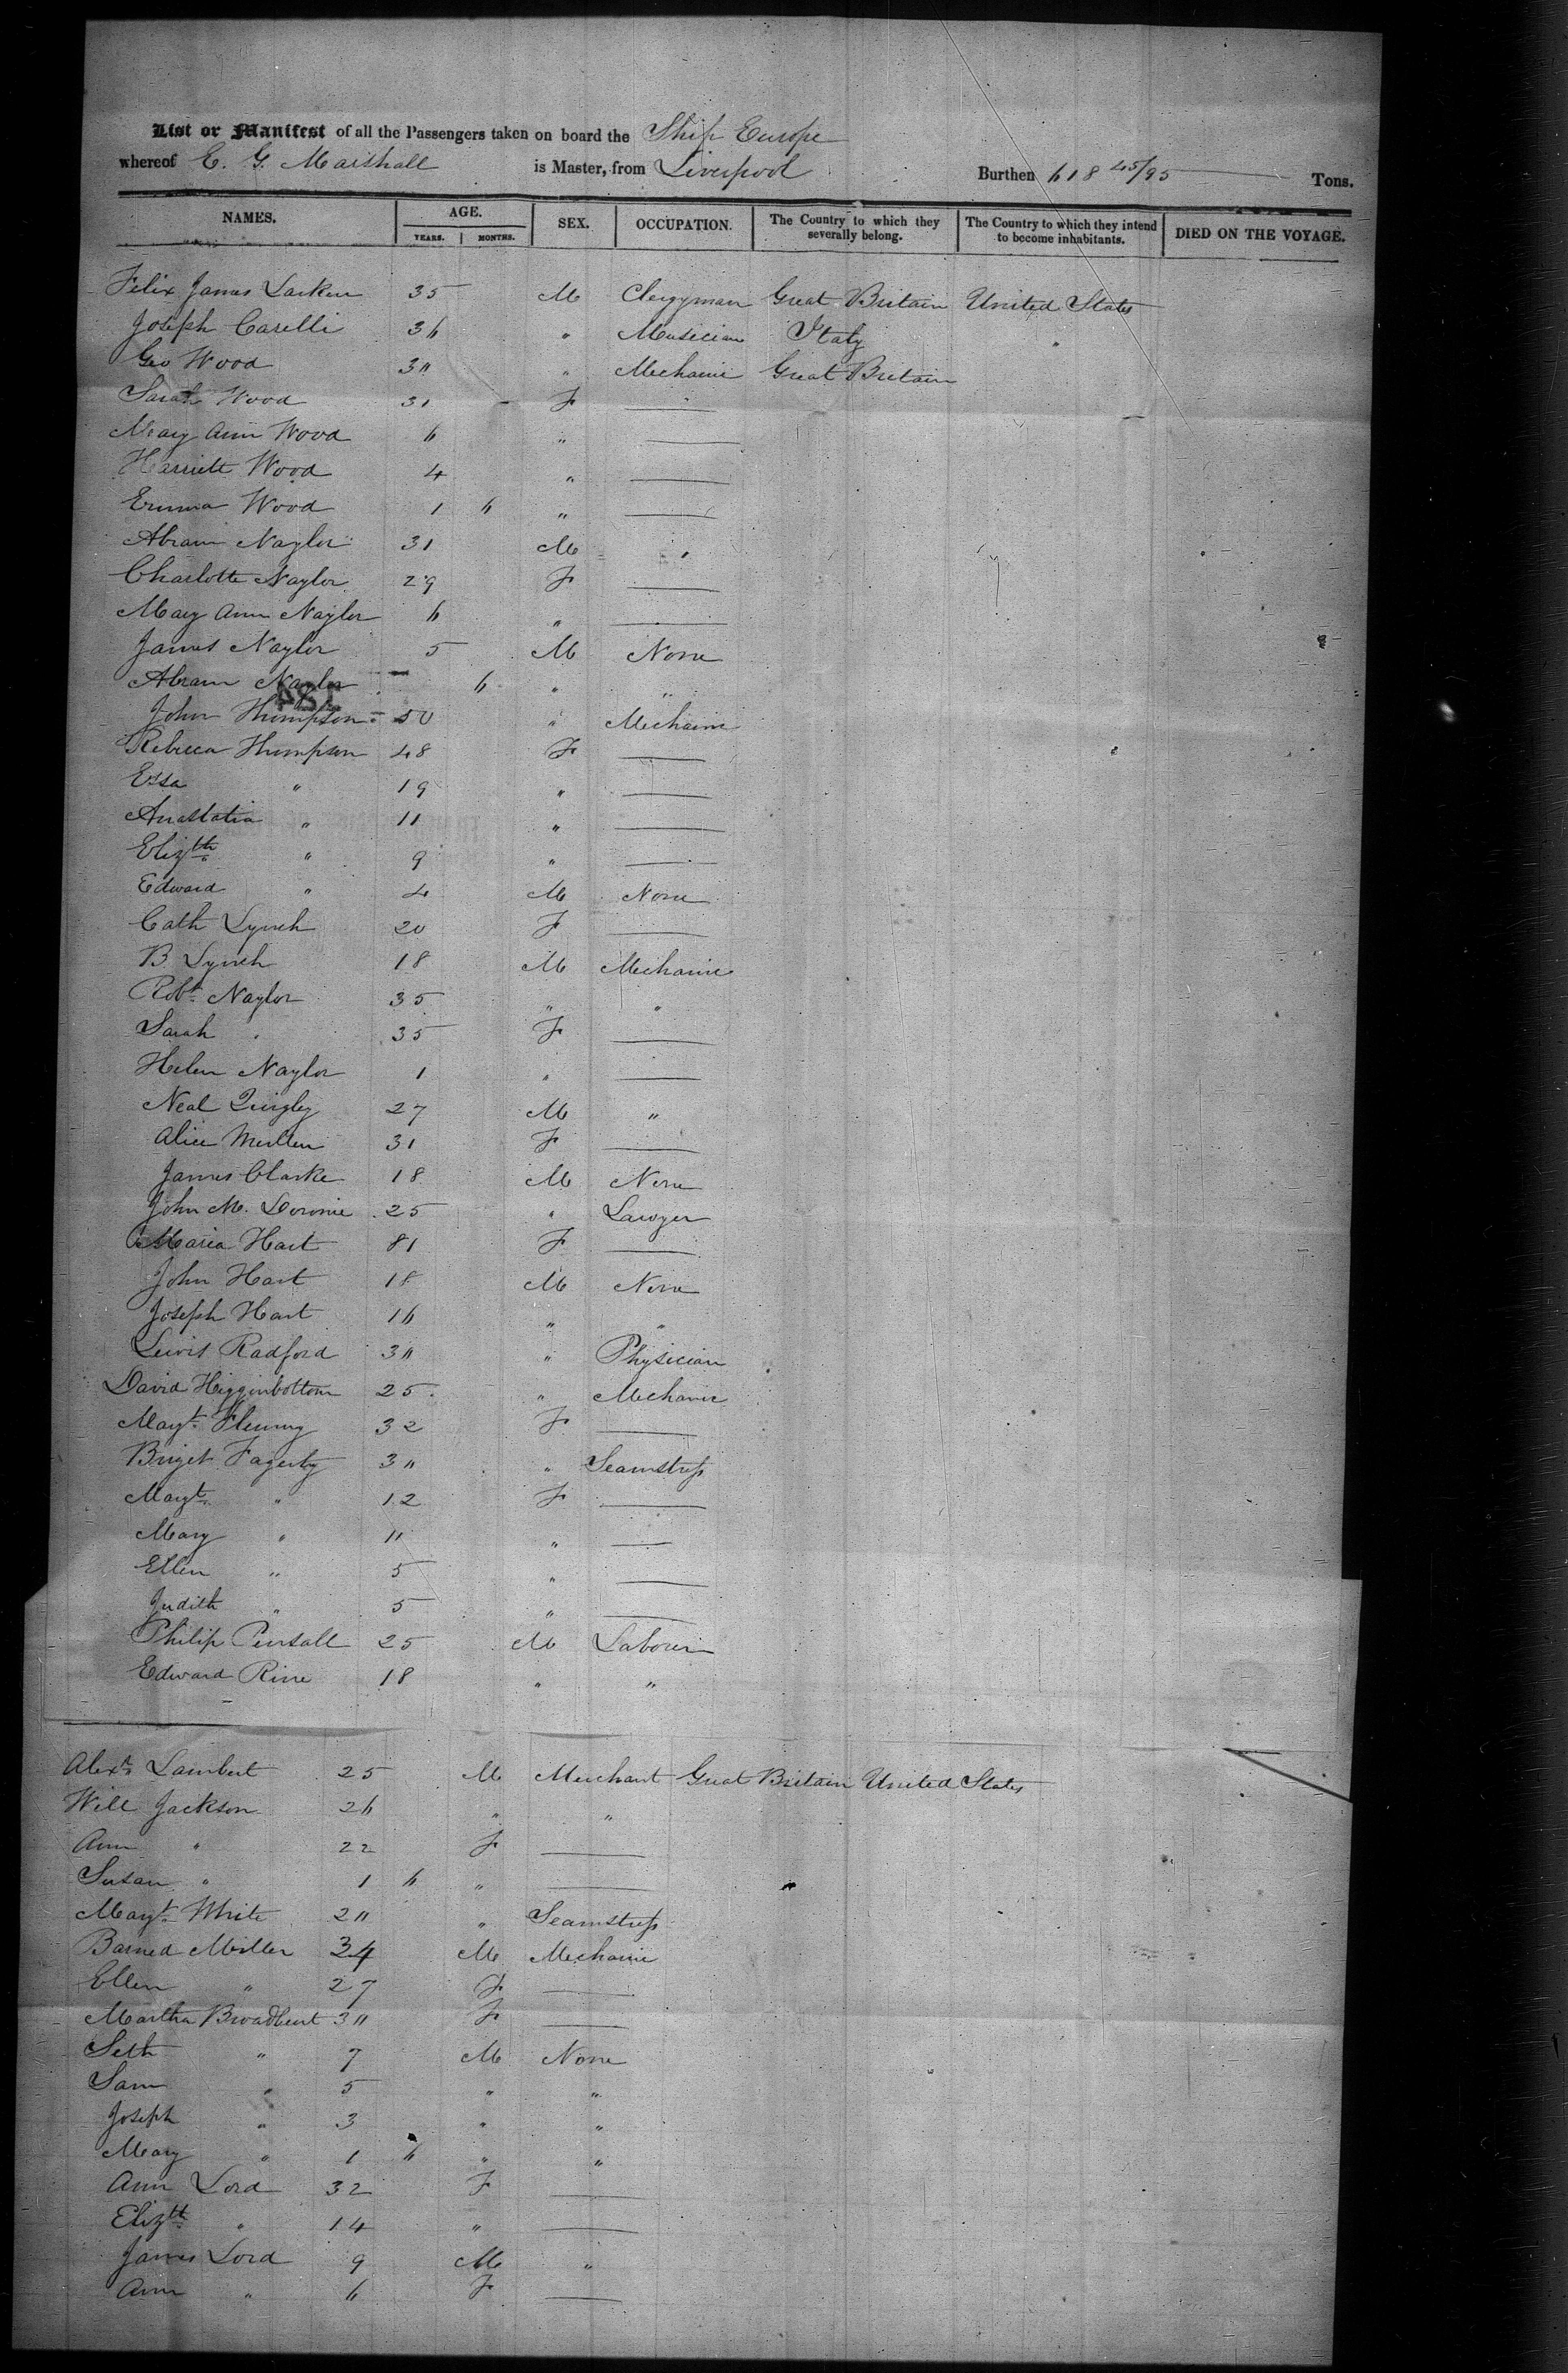 List or Manifest of all the Passengers taken on board the Ship Europe
whereof E. G. Marshall is Master, from Liverpool Burthen 618 45/95 Tons.
NAMES. AGE. YEARS. MONTHS. SEX. OCCUPATION. The Country to which they severally belong. The Country to which they intend to become inhabitants. DIED ON THE VOYAGE.
Felix James Larkin 35 M Clergyman Great Britain United States
Joseph Caselli 36 " Musician Italy "
Geo Wood 30 " Mechanic Great Britain
Sarah Wood 31 F —
Mary Ann Wood 6 " —
Harriett Wood 4 " —
Emma Wood 1 6 " —
Abram Naylor 31 M "
Charlotte Naylor 29 F —
Mary Ann Naylor 6 " —
James Naylor 5 M None
Abram Naylor — 6 " "
John Thompson 50 " Mechanic
Rebecca Thompson 48 F —
" 19 " —
Anastatia " 11 " —
Elizth " 9 " —
Edward " 4 M None
Cath Lynch 20 F —
B Lynch 18 M Mechanic
Robt Naylor 35 " "
Sarah " 35 F —
Helen Naylor 1 " —
Neal Quigley 27 M "
Alice 31 F —
James Clarke 18 M None
John M. 25 " Lawyer
Maria Hart 81 F —
John Hart 18 M None
Joseph Hart 16 " "
Lewis Radford 30 " Physician
David Higginbottom 25 " Mechanic
Margt Fleming 32 F —
Briget Fagerty 30 " Seamstress
Margt " 12 F —
Mary " 11 " —
Ellen " 5 " —
Judith " 5 " —
Philip Pursall 25 M Laborer
Edward Rine 18 " "
Alexr Lambert 25 M Merchant Great Britain United States
Will Jackson 26 " "
Ann " 22 F —
Susan " 1 6 " —
Margt White 20 " Seamstress
Barned Miller 34 M Mechanic
Ellen " 27 F —
Martha Broadbent 30 F —
Seth " 7 M None
Sam " 5 " "
Joseph " 3 " "
Mary " 1 6 " "
Ann Lord 32 F —
Elizth " 14 " —
James Lord 9 M "
Ann " 6 F —